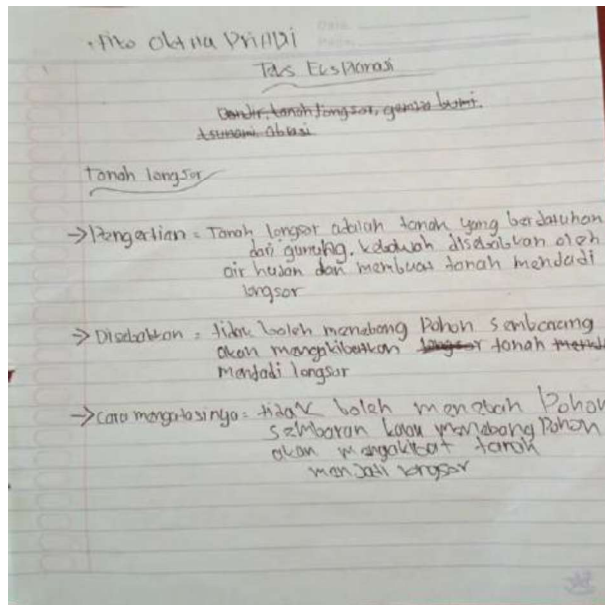 Teks Eksplanasi
Banjir, tanah longsor, gempa bumi.
tsunami. abrasi
Tanah longsor
→ Pengertian = Tanah longsor adalah tanah yang berjatuhan
dari gunung. kebawah disebabkan oleh
air hujan dan membuat tanah mendadi
longsor
→ Disebabkan = tidak boleh menebang Pohon sembarang
akan mengakibatkan longsor tanah
menjadi longsor
→ Cara mengatasinya = tidak boleh menebah Pohon
sembaran kalau menebang Pohon
akan mengakibat tanah
menjadi longsor